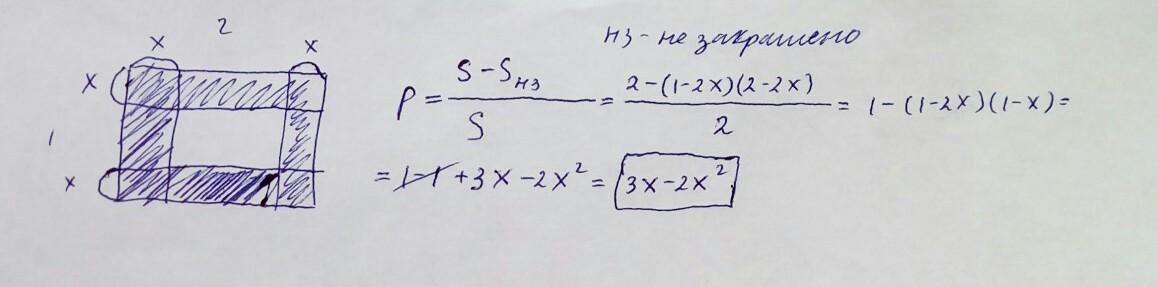 2
x x
x
1
x
НЗ - не закрашено
P = (S - Sнз) / S = (2 - (1-2x)(2-2x)) / 2 = 1 - (1-2x)(1-x) =
= 1-1 + 3x - 2x² = 3x - 2x²